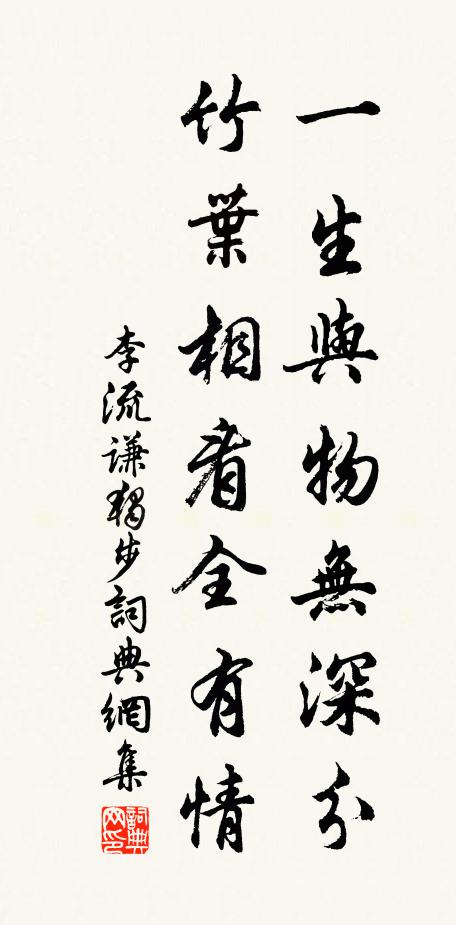 一生與物無深分
竹葉相看全有情
李流謙獨步詞典網集
詞典网印